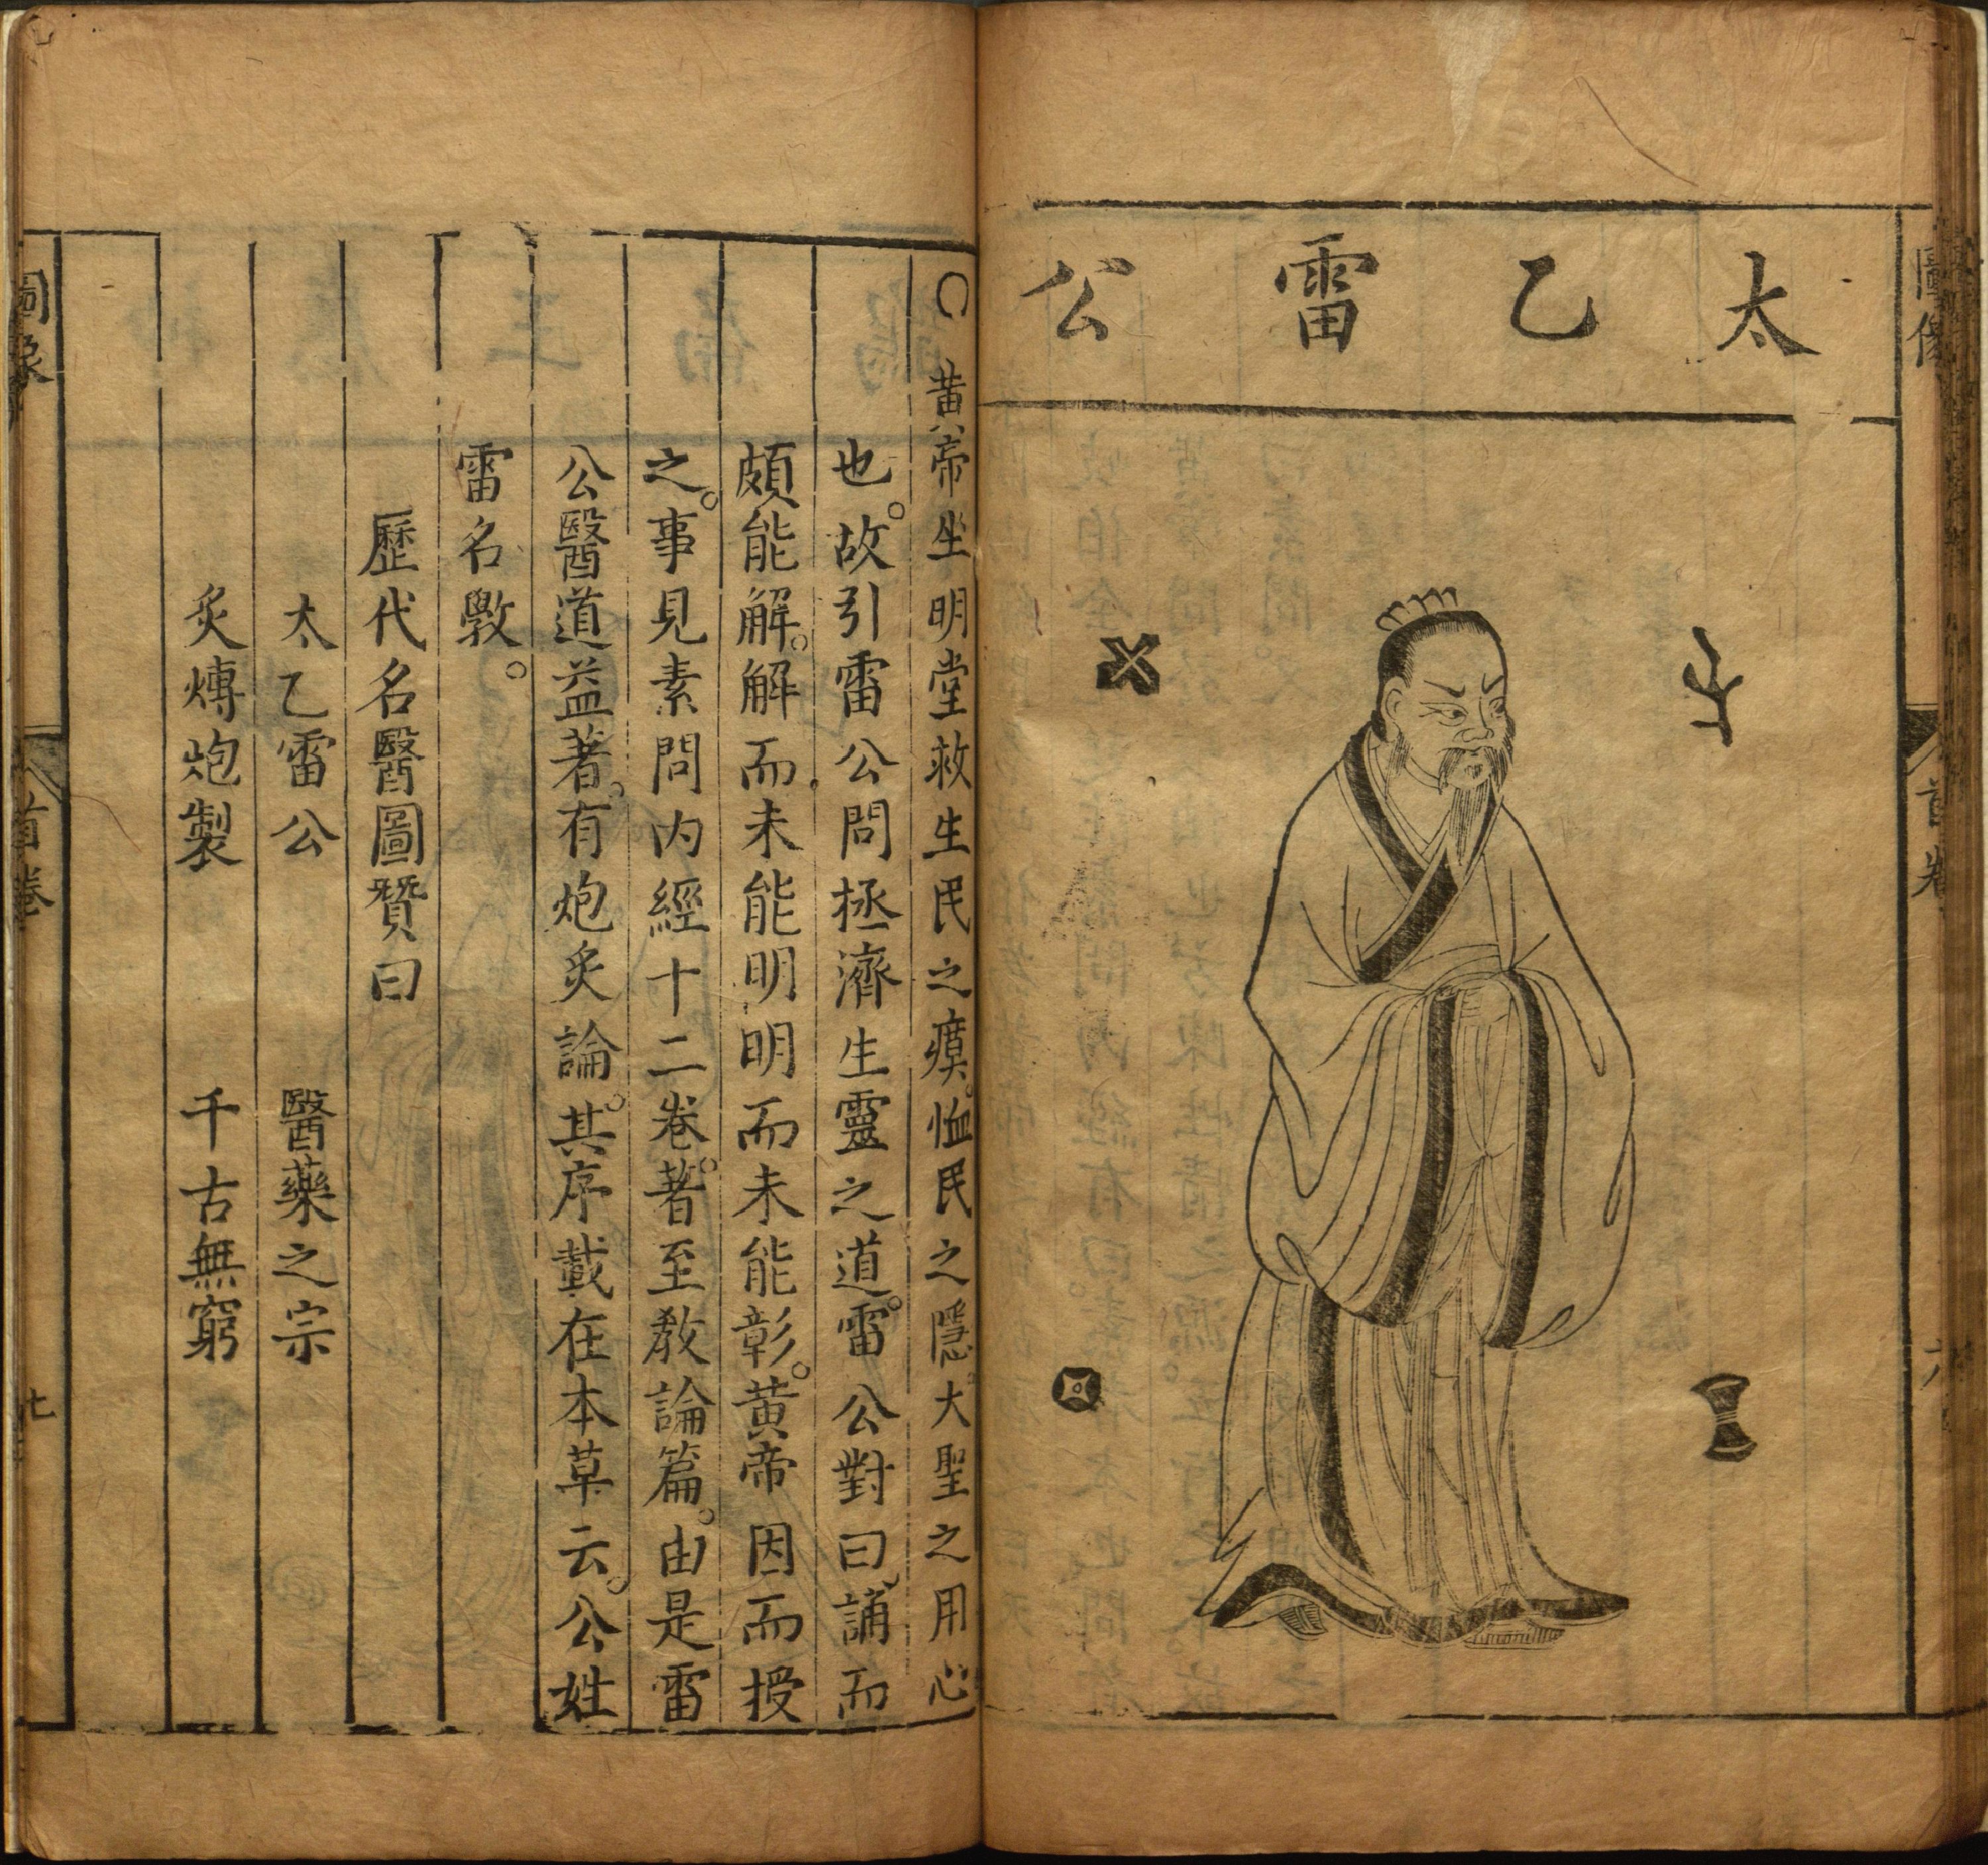 太乙雷公
○黄帝坐明堂救生民之瘼。恤民之隱。大聖之用心
也。故引雷公問拯濟生靈之道。雷公對曰、誦而
頗能解。解而未能明明而未能彰。黄帝因而授
之。事見素問内經十二卷。著至教論篇。由是雷
公醫道益著。有炮炙論。其序載在本草云。公姓
雷名斆。
歷代名醫圖贊曰
太乙雷公 醫藥之宗
炙煿炮製 千古無窮
圖象 首卷 七